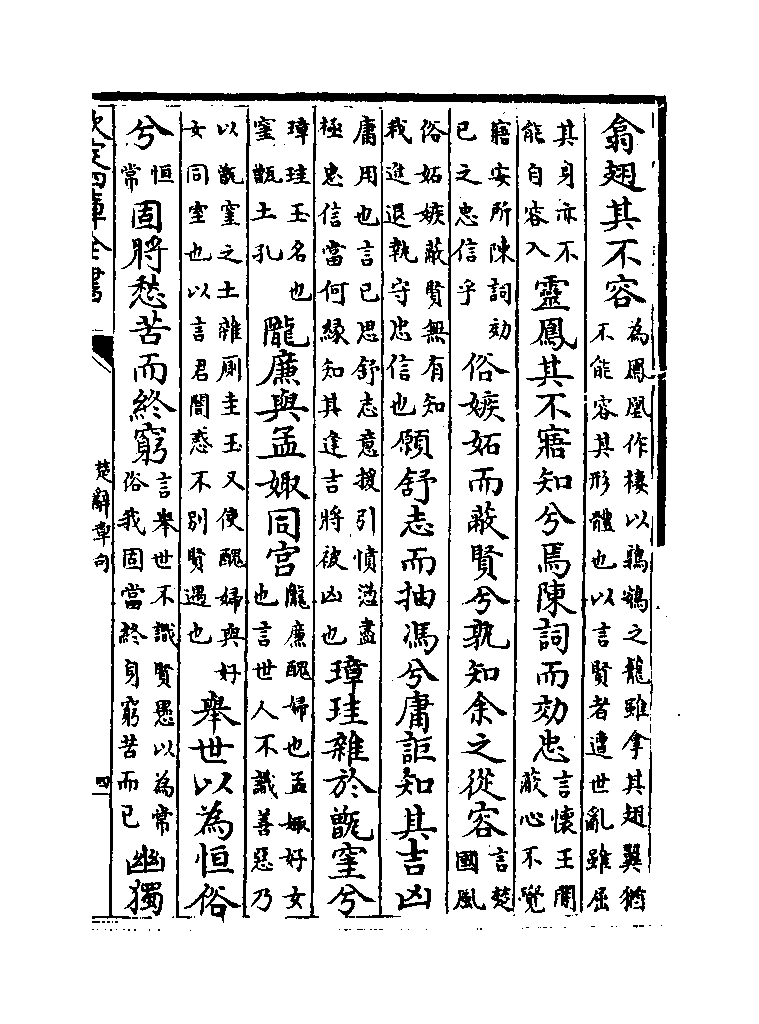 翕翅其不容為鳳凰作棲以鶉鴳之籠雖拿其翅翼猶不能容其形體也以言賢者遭世亂雖屈
其身亦不能自容入靈鳳其不寤知兮焉陳詞而効忠言懷王闇蔽心不覺
寤安所陳詞効已之忠信乎俗嫉妬而蔽賢兮孰知余之從容言楚國風
俗妬嫉蔽賢無有知我進退執守忠信也願舒志而抽馮兮庸詎知其吉凶
庸用也言已思舒志意援引憤懣盡極忠信當何緣知其逢吉將被凶也璋珪雜於甑窐兮
璋珪玉名也窐甑土孔隴廉與孟娵同宫隴廉醜婦也孟娵好女也言世人不識善惡乃
以甑窐之土雜厠圭玉又使醜婦與好女同室也以言君闇惑不别賢遇也舉世以為恒俗
兮恒常固將愁苦而終窮言舉世不識賢愚以為常俗我固當終身窮苦而已幽獨
欽定四庫全書
楚辭章句
四